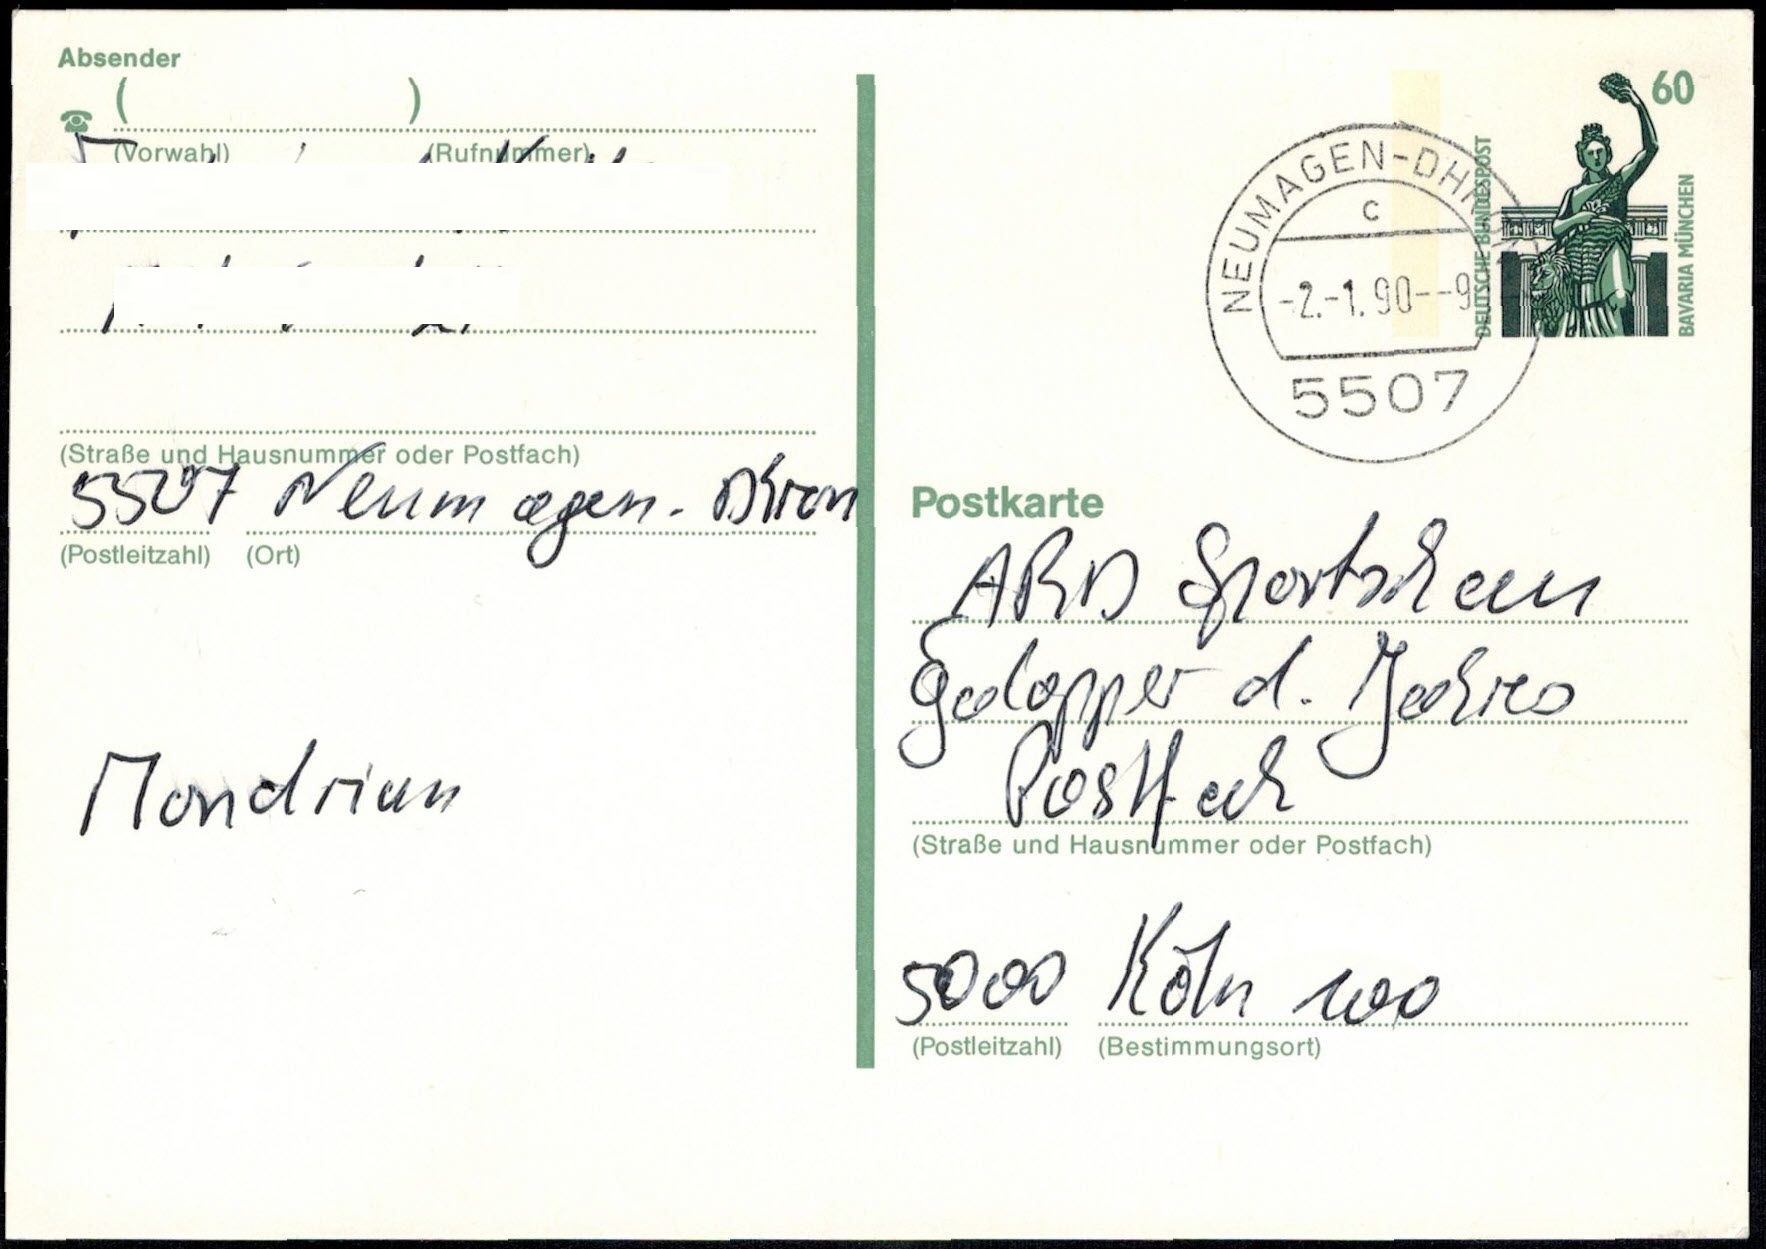 Absender
( )
(Vorwahl) (Rufnummer)
(Straße und Hausnummer oder Postfach)
5507 Neumagen-Dhron
(Postleitzahl) (Ort)
Mondrian
60
DEUTSCHE BUNDESPOST
BAVARIA MÜNCHEN
NEUMAGEN-DHRON
c
-2.-1.90--9
5507
Postkarte
ARD Sportschau
Galopper d. Jahres
Postfach
(Straße und Hausnummer oder Postfach)
5000 Köln 100
(Postleitzahl) (Bestimmungsort)